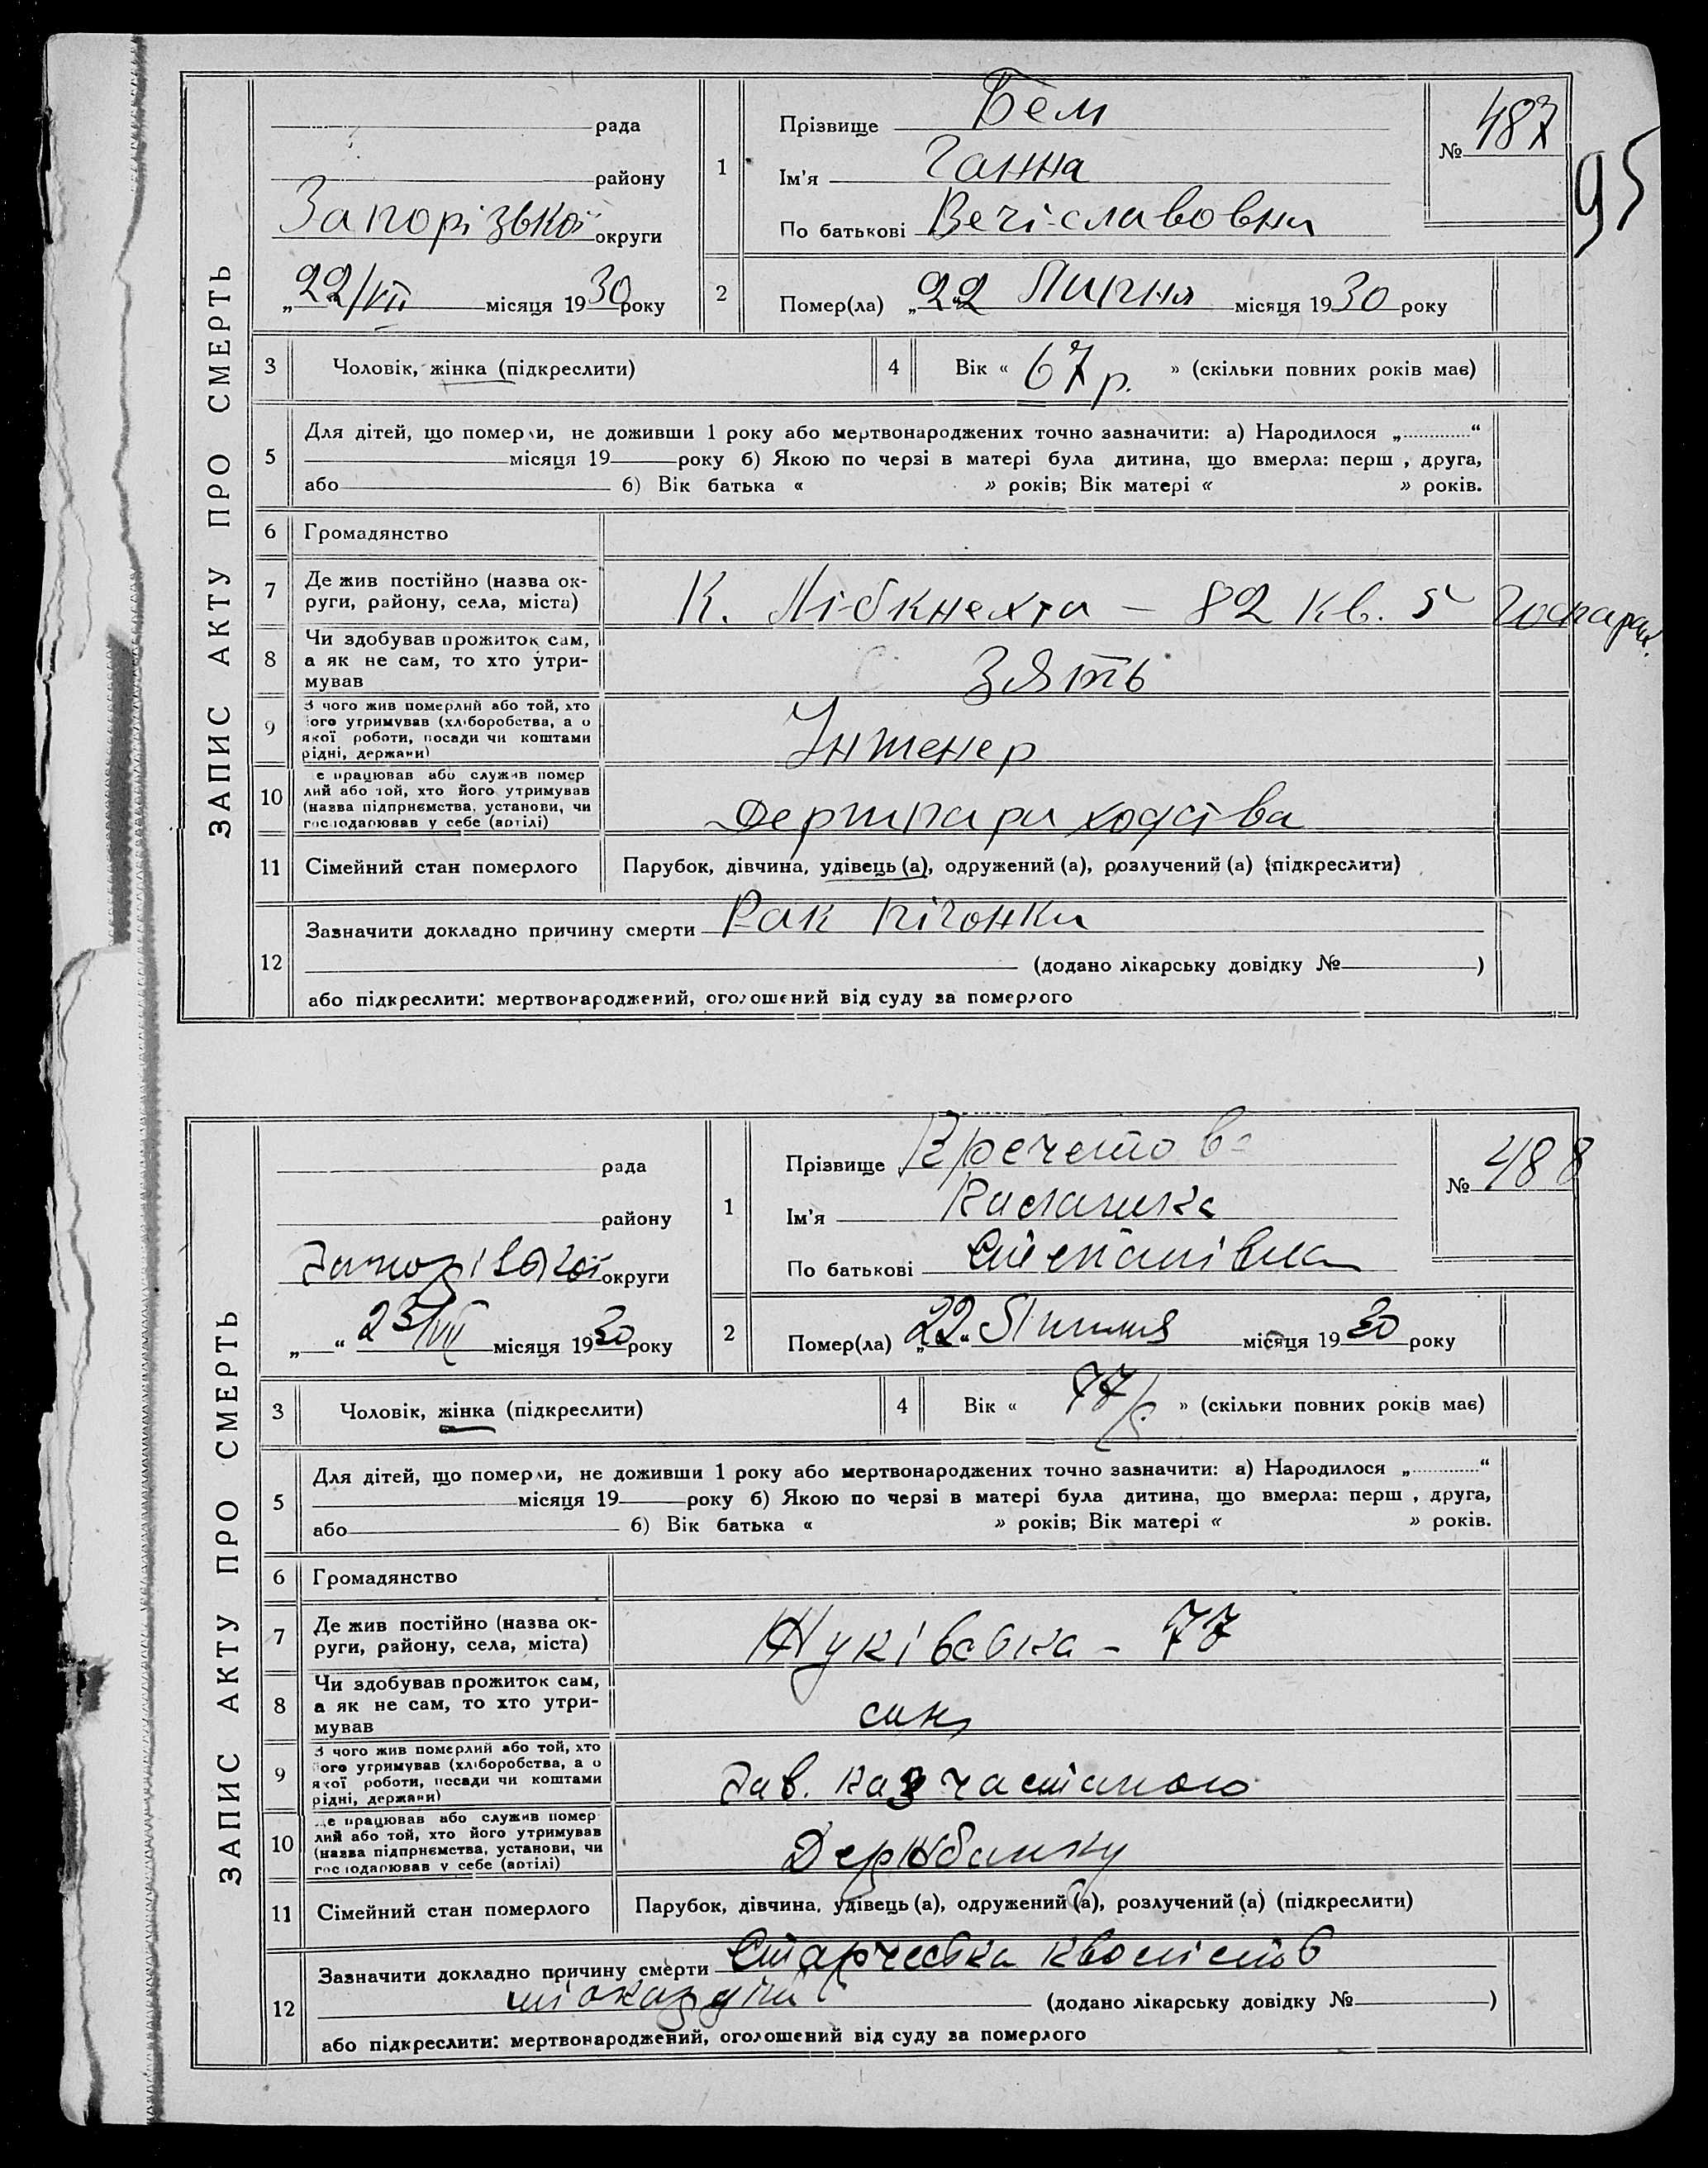 95
ЗАПИС АКТУ ПРО СМЕРТЬ
рада
району
Запорізької округи
„22/VII місяця 1930 року
1
Прізвище Бем
Ім'я Ганна
По батькові Вечіславовна
№ 487
2
Помер(ла) „22 Липня місяця 1930 року
3 Чоловік, жінка (підкреслити)
4 Вік « 67 р. » (скільки повних років має)
5 Для дітей, що померли, не доживши 1 року або мертвонароджених точно зазначити: а) Народилося „ “
місяця 19 року б) Якою по черзі в матері була дитина, що вмерла: перш , друга,
або б) Вік батька « » років; Вік матері « » років.
6 Громадянство
7 Де жив постійно (назва ок-
руги, району, села, міста)
К. Лібкнехта – 82 кв. 5
8 Чи здобував прожиток сам,
а як не сам, то хто утри-
мував
Зять
9 З чого жив померлий або той, хто
його утримував (хліборобства, а о
якої роботи, посади чи коштами
рідні, держави)
Інженер
10 е працював або служив помер
лий або той, хто його утримував
(назва підприємства, установи, чи
господарював у себе (артілі)
Держпароходства
11 Сімейний стан померлого Парубок, дівчина, удівець (а), одружений (а), розлучений (а) (підкреслити)
12 Зазначити докладно причину смерти Рак пічонки
(додано лікарську довідку № )
або підкреслити: мертвонароджений, оголошений від суду за померлого
ЗАПИС АКТУ ПРО СМЕРТЬ
рада
району
Запорізької округи
„ “ 23/VII місяця 1930 року
1
Прізвище
Ім'я
По батькові Степанівна
№ 488
2
Помер(ла) „22“ Липня місяця 1930 року
3 Чоловік, жінка (підкреслити)
4 Вік « 77 р. » (скільки повних років має)
5 Для дітей, що померли, не доживши 1 року або мертвонароджених точно зазначити: а) Народилося „ “
місяця 19 року б) Якою по черзі в матері була дитина, що вмерла: перш , друга,
або б) Вік батька « » років; Вік матері « » років.
6 Громадянство
7 Де жив постійно (назва ок-
руги, району, села, міста)
Жуківська – 77
8 Чи здобував прожиток сам,
а як не сам, то хто утри-
мував
син
9 З чого жив померлий або той, хто
його утримував (хліборобства, а о
якої роботи, посади чи коштами
рідні, держави)
Зав. частиною
10 е працював або служив помер
лий або той, хто його утримував
(назва підприємства, установи, чи
господарював у себе (артілі)
Держбанку
11 Сімейний стан померлого Парубок, дівчина, удівець (а), одружений (а), розлучений (а) (підкреслити)
12 Зазначити докладно причину смерти Старчеська кволість
міокардіт (додано лікарську довідку № )
або підкреслити: мертвонароджений, оголошений від суду за померлого